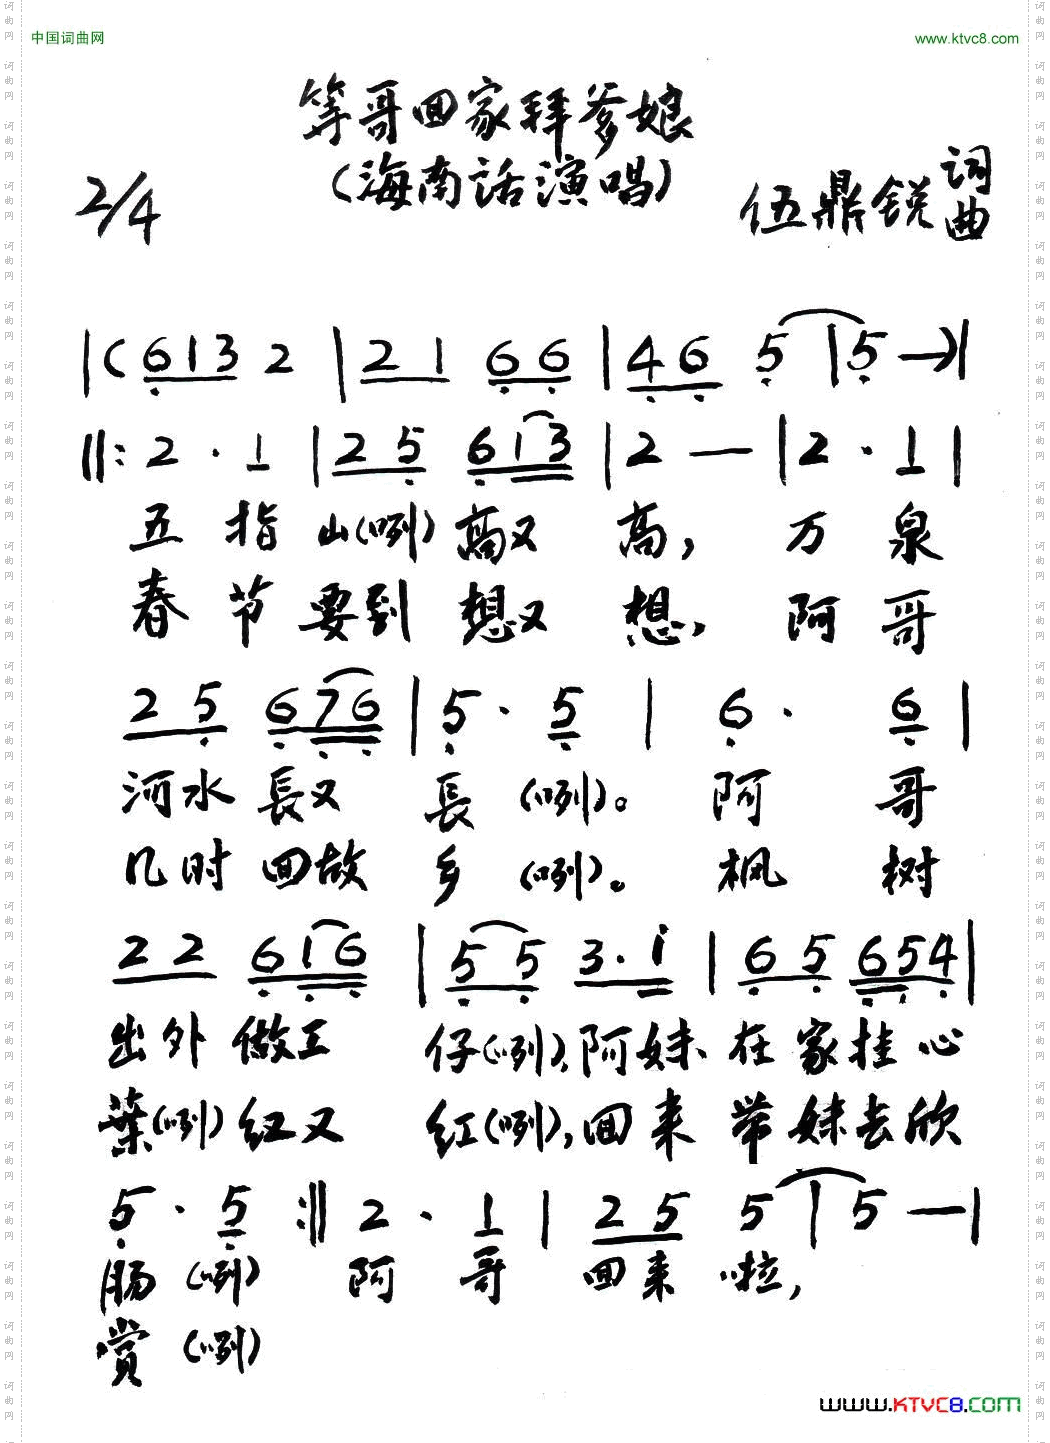 中国词曲网 www.ktvc8.com
等哥回家拜爹娘
(海南话演唱)
2/4
伍鼎锐 词曲
|(6 1 3 2 | 2 1 6 6 | 4 6 5 | 5 —)|
‖: 2 · 1 | 2 5 6 1 3 | 2 — | 2 · 1 |
五 指 山(咧) 高又 高, 万 泉
春 节 要到 想又 想, 阿 哥
2 5 6 7 6 | 5 · 5 | 6 · 6 |
河水 長又 長 (咧)。 阿 哥
几时 回故 乡 (咧)。 枫 树
2 2 6 1 6 | 5 5 3 · i | 6 5 6 5 4 |
出外 做工 仔(咧), 阿妹 在家挂心
葉(咧) 红又 红(咧), 回来 带妹去欣
5 · 5 :‖ 2 · 1 | 2 5 5 | 5 — |
肠 (咧) 阿 哥 回来 啦,
赏 (咧)
www.KTVC8.COM